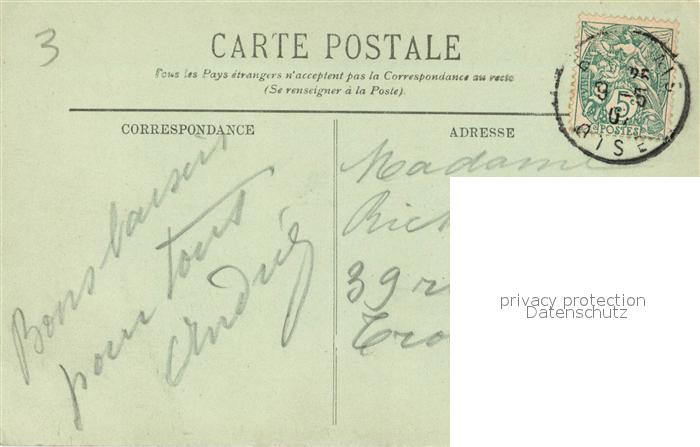 3
CARTE POSTALE
Tous les Pays étrangers n'acceptent pas la Correspondance au recto
(Se renseigner à la Poste).
CORRESPONDANCE
ADRESSE
Bons baisers
pour tous
Andrée
Madame
39
privacy protection
Datenschutz
5
POSTES
OISE